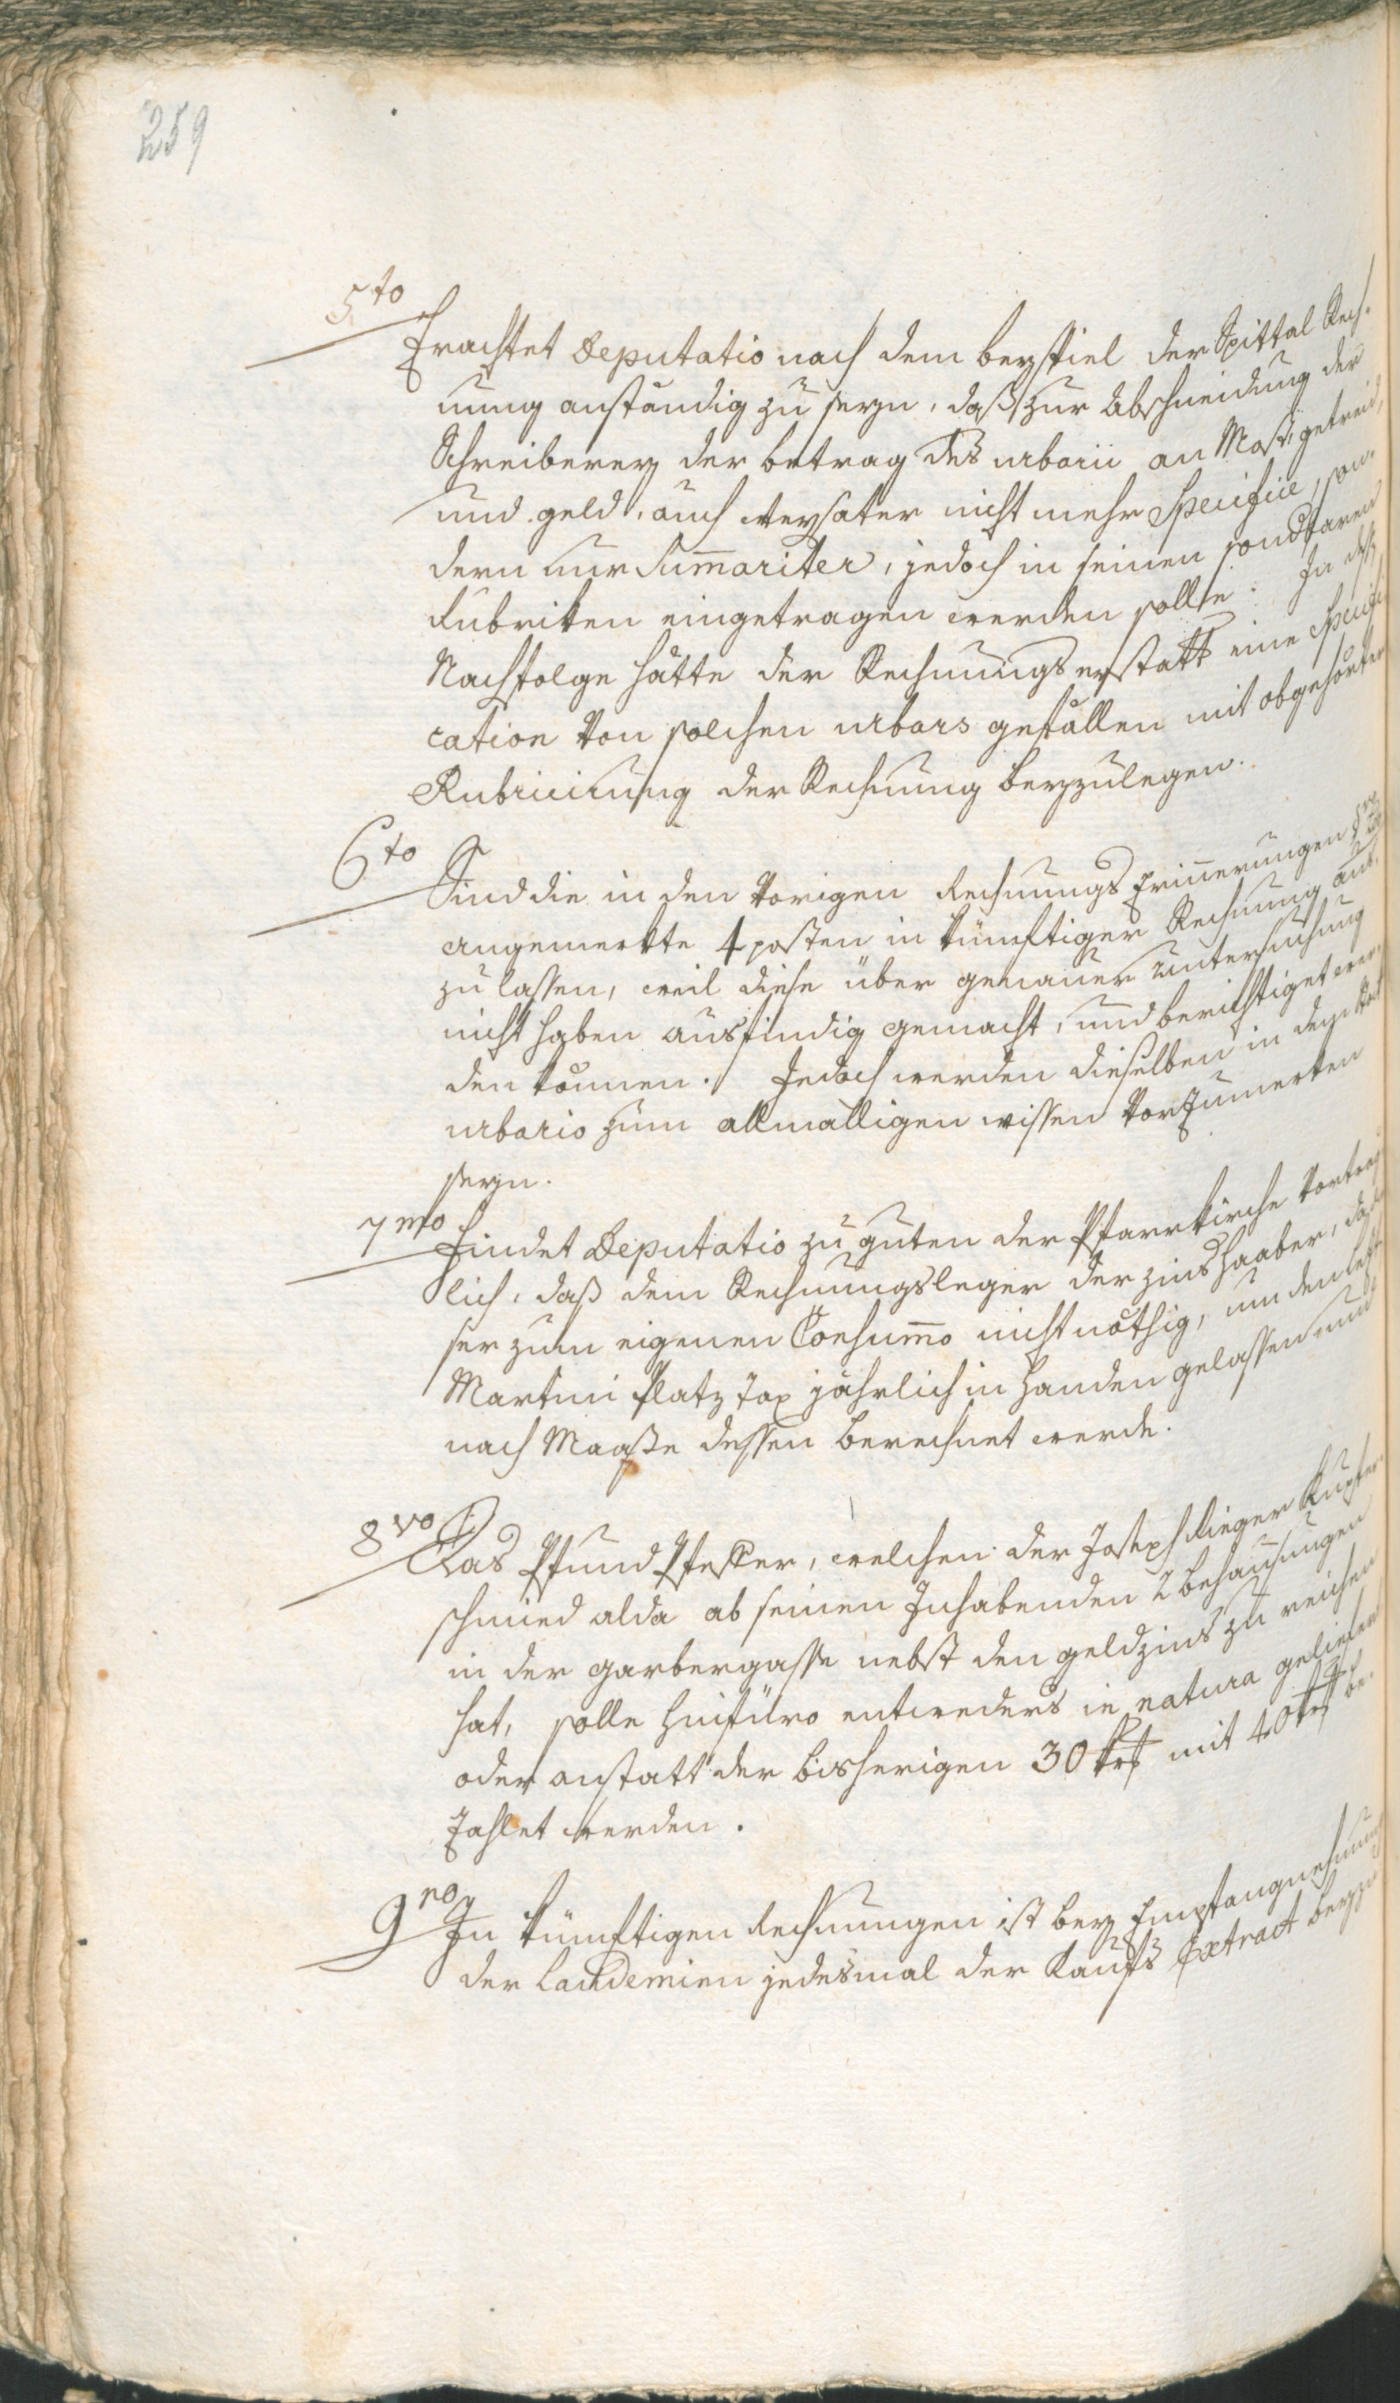 259
5to
Erachtet Deputatio nach dem beyspiel der Spittal Rech-
nung anständig zu seyn, daß zur Abschneidung der
Schreiberey der betrag des urbarii an Most, getreid,
und geld, auch Weysater nicht mehr Specifice, son-
dern nur Sum̄ariter, jedoch in seinen sondbaren
Rubriken eingetragen werden solle. In deß
Nachfolge hätte der Rechnungserstatt eine Specifi
cation von solchen urbars gefällen mit obgehörter
Rubricirung der Rechnung beyzulegen.
6to
Sind die in den vorigen Rechnungs Erin̄erungen
angemerkte 4 posten in künftiger Rechnung aus-
zu lassen, weil diese über genauer Untersuchung
nicht haben ausfindig gemacht, und berichtiget wer-
den können. Jedoch werden dieselben in dem
urbario zum allmalligen wissen vorzumerken
seyn.
7mo
Findet Deputatio zu guten der Pfarrkirche vortrag
lich, daß dem Rechnungsleger der zinshaaber, da
ser zum eigenen Consum̄o nicht nöthig, um den
Martini Platz Tax jährlich in Handen gelassen und
nach Maaße dessen berechnet werde.
8vo
Das Pfund Pfeffer, welchen der Joseph Rieger Kupfer-
schmied alda ab seinen Inhabenden 2 behausungen
in der garbergasse nebst den geldzins zu reichen
hat, solle hinfüro entweders in natura geliefert
oder anstatt der bisherigen 30 kr mit 40 kr be-
zahlet werden.
9no
In künftigen Rechnungen ist bey Empfangnehmung
der Laudemien jedesmal der Kaufs Extract beyzu